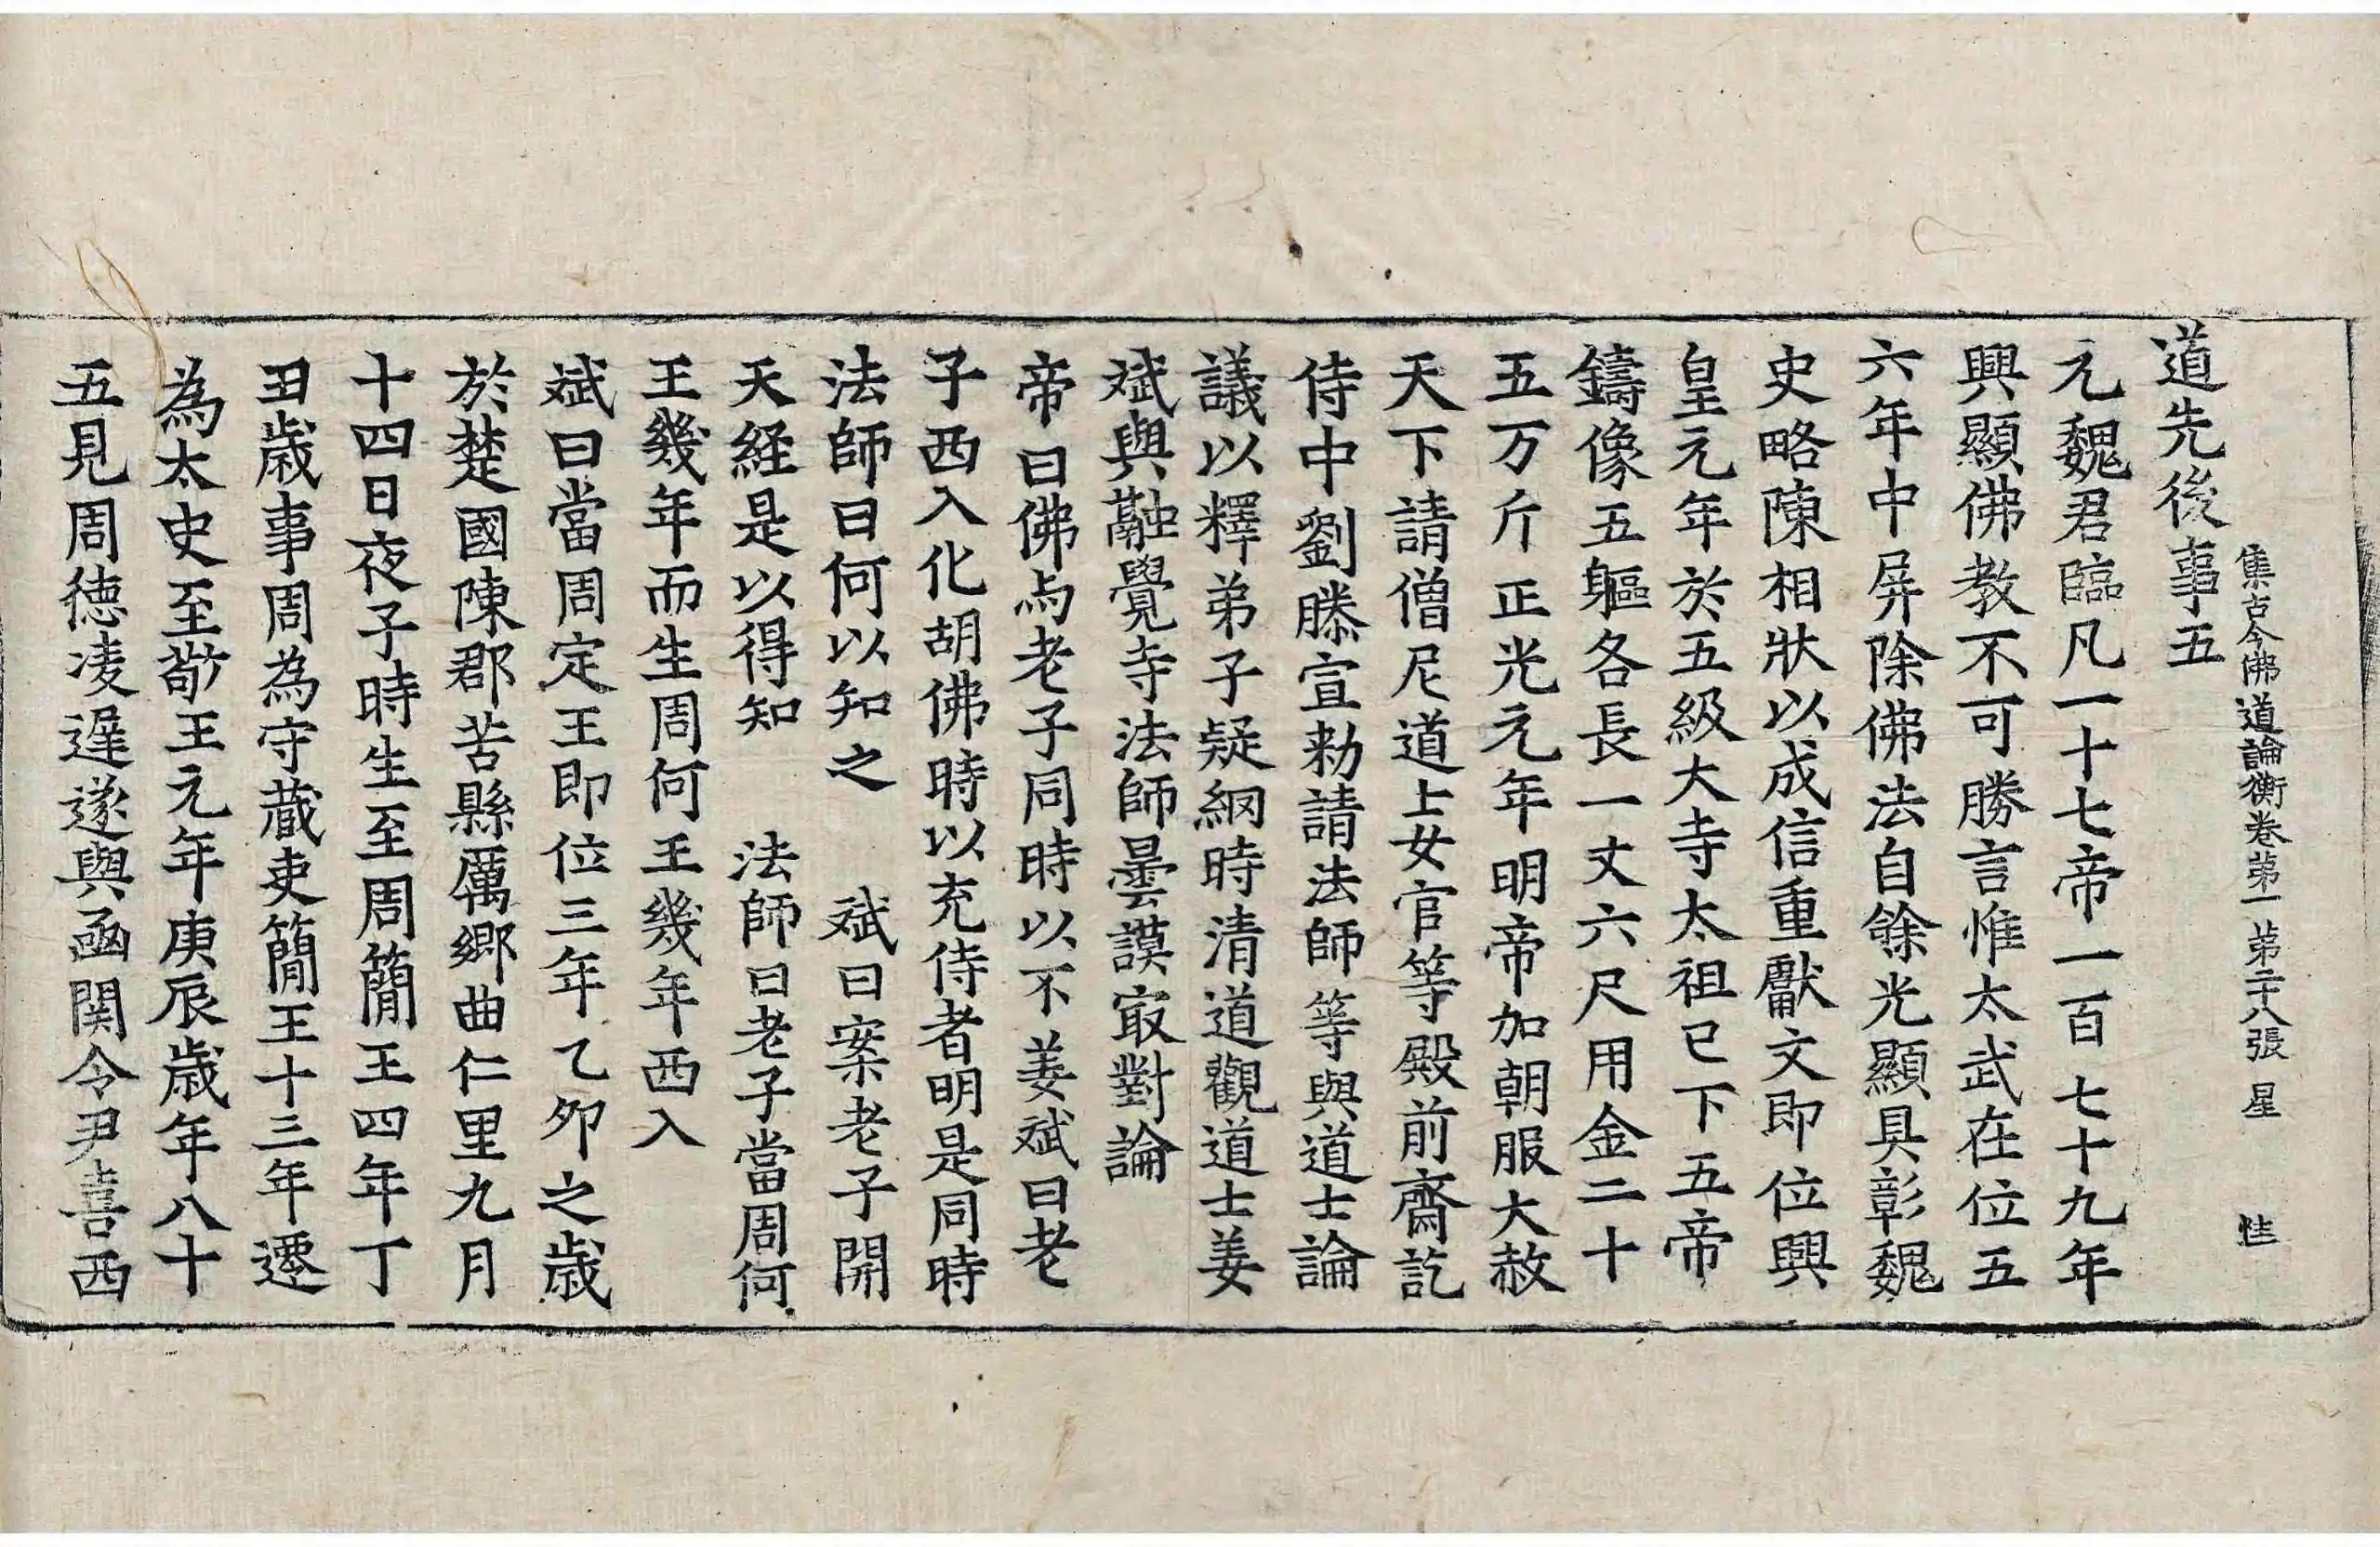 集古今佛道論衡卷第一 第二十八張 星
道先後事五
元魏君臨凡一十七帝一百七十九年
興顯佛教不可勝言惟太武在位五
六年中屏除佛法自餘光顯具彰魏
史略陳相狀以成信重獻文即位興
皇元年於五級大寺太祖已下五帝
鑄像五軀各長一丈六尺用金二十
五万斤正光元年明帝加朝服大赦
天下請僧尼道士女官等殿前齋訖
侍中劉滕宣勑請法師等與道士論
議以釋弟子疑網時清道觀道士姜
斌與融覺寺法師曇謨㝡對論
帝曰佛与老子同時以不姜斌曰老
子西入化胡佛時以充侍者明是同時
法師曰何以知之 斌曰案老子開
天経是以得知 法師曰老子當周何
王幾年而生周何王幾年西入
斌曰當周定王即位三年乙夘之歳
於楚國陳郡苦縣厲鄉曲仁里九月
十四日夜子時生至周簡王四年丁
丑歳事周為守蔵吏簡王十三年遷
為太史至敬王元年庚辰歳年八十
五見周德凌遲遂與函関令尹喜西